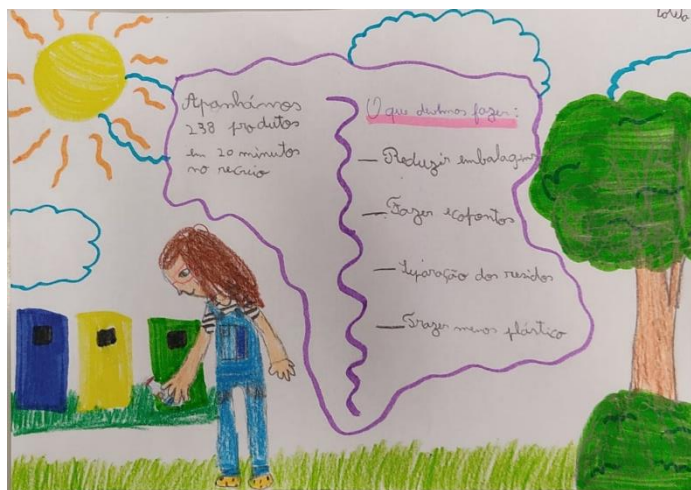 Apanhámos
238 produtos
em 20 minutos
no recreio
O que devemos fazer:
— Reduzir embalagens
— Fazer ecopontos
— Separação dos residos
— Trazer menos plástico